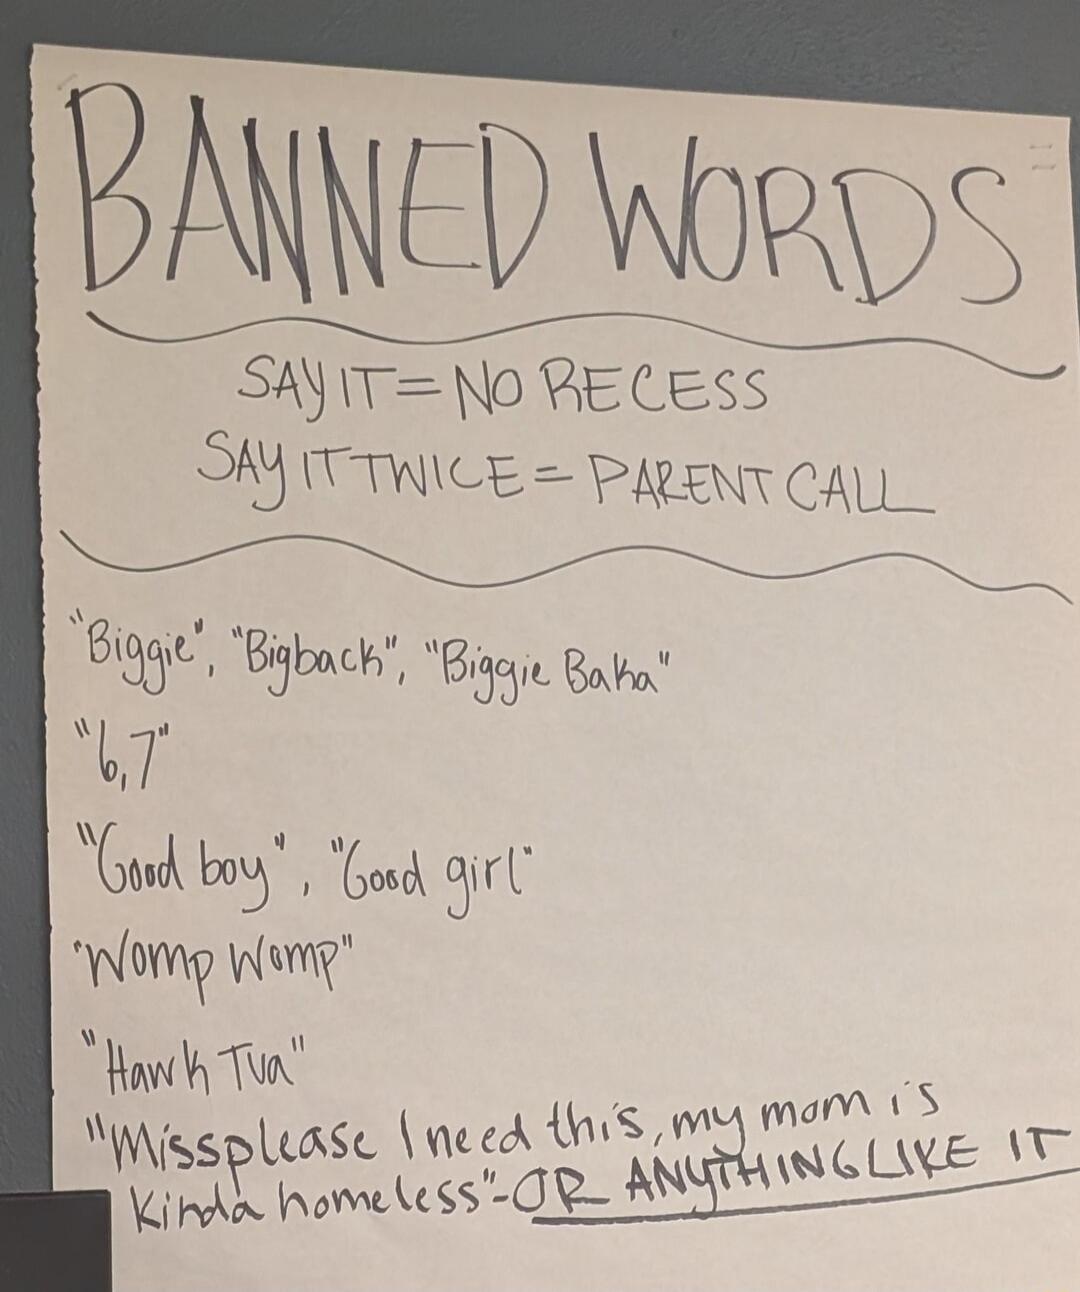 BANNED WORDS
SAY IT = NO RECESS
SAY IT TWICE = PARENT CALL
"Biggie", "Bigback", "Biggie Baka"
"6,7"
"Good boy", "Good girl"
"Womp Womp"
"Hawk Tua"
"Miss please I need this, my mom is
kinda homeless"-OR ANYTHING LIKE IT